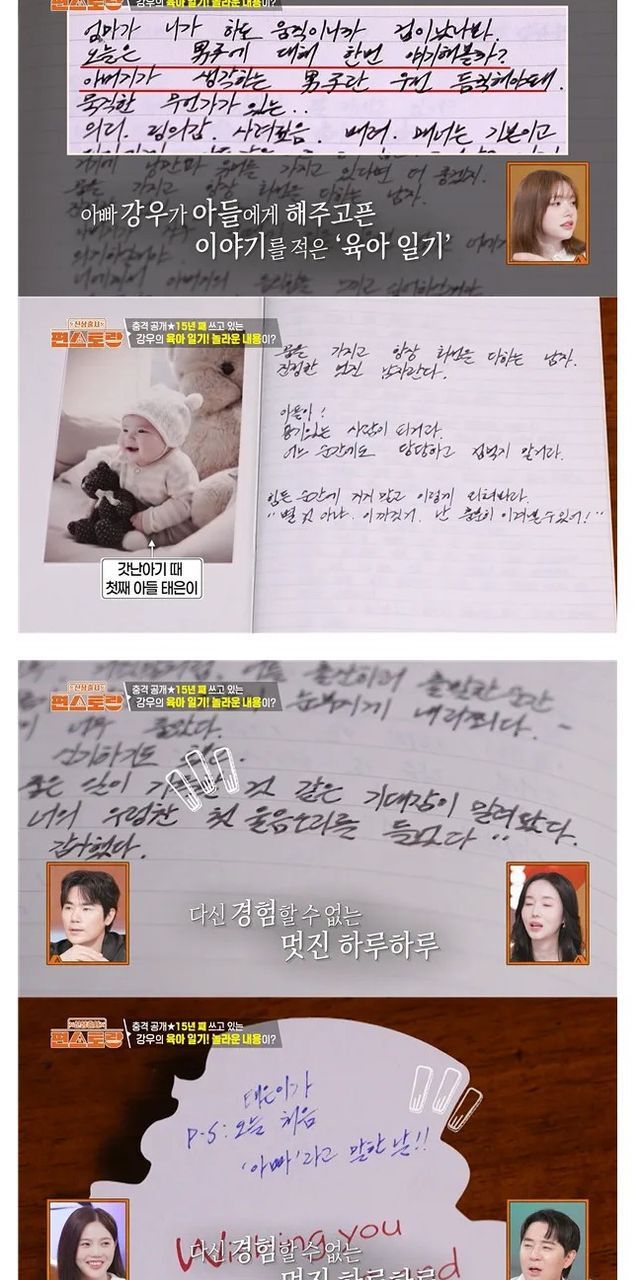 강우의 육아 일기! 놀라운 내용이?
엄마가 니가 하도 움직이니까 겁이났나봐.
오늘은 男子에 대해 한번 얘기해볼까?
아버지가 생각하는 男子란 우선 듬직해야돼.
묵직한 무언가가 있는...
의리. 책임감. 사려깊음. 배려. 매너는 기본이고
거기에 낭만과 유머를 가지고 있다면 더 좋겠지.
꿈을 가지고 항상 최선을 다하는 남자.
아빠 강우가 아들에게 해주고픈
이야기를 적은 ‘육아 일기’
신상출시
편스토랑
충격 공개★15년 째 쓰고 있는
강우의 육아 일기! 놀라운 내용이?
꿈을 가지고 항상 최선을 다하는 남자.
진정한 멋진 남자란다.
아들아!
용기있는 사람이 되거라.
어느 순간에도 당당하고 겁먹지 말거라.
힘든 순간에 지지 말고 이렇게 외쳐봐라.
"별 것 아냐. 이까짓거. 난 충분히 이겨낼 수 있어!"
갓난아기 때
첫째 아들 태은이
신상출시
편스토랑
충격 공개★15년 째 쓰고 있는
강우의 육아 일기! 놀라운 내용이?
출발한 순간
눈부시게 내리쬐다.
이 너무 좋았다.
신기하기도
좋은 일이 것 같은 기대감이 밀려왔다.
너의 우렁찬 첫 울음소리를 들었다
감사했다.
다신 경험할 수 없는
멋진 하루하루
신상출시
편스토랑
충격 공개★15년 째 쓰고 있는
강우의 육아 일기! 놀라운 내용이?
태은이가
P.S: 오늘 처음
'아빠'라고 말한 날!!
Wishing you
다신 경험할 수 없는
멋진 하루하루